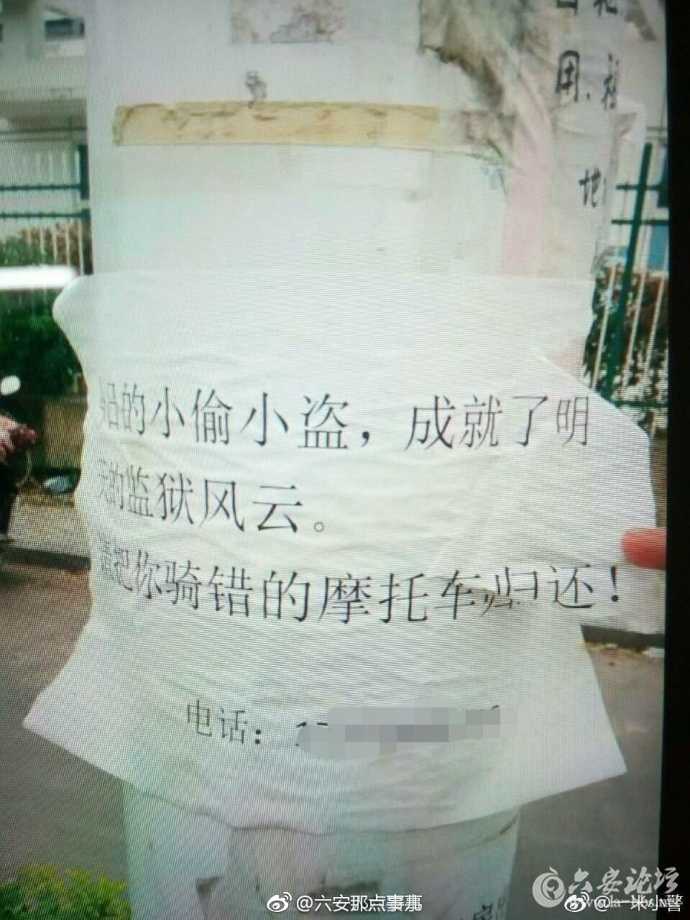 用.
地
的小偷小盗，成就了明
天的监狱风云。
请把你骑错的摩托车归还！
电话：
@六安那点事儿
六安论坛